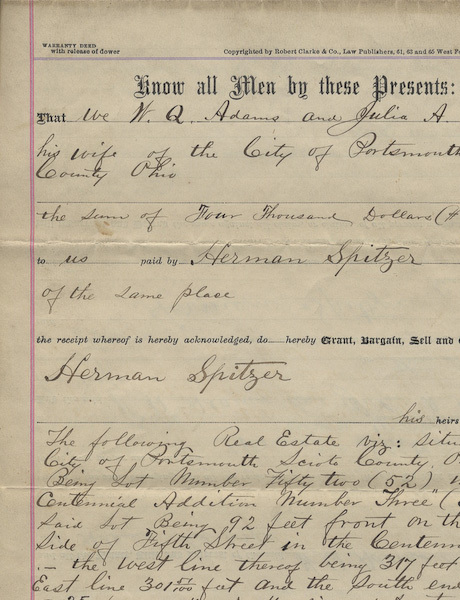 WARRANTY DEED
with release of dower
Copyrighted by Robert Clarke & Co., Law Publishers, 61, 63 and 65 West
Know all Men by these Presents:
That We W. Q. Adams and Julia A
his wife of the City of Portsmouth
County Ohio
the sum of Four Thousand Dollars (
to us paid by Herman Spitzer
of the same place
the receipt whereof is hereby acknowledged, do hereby Grant, Bargain, Sell and
Herman Spitzer
his heirs
The following Real Estate viz: Situ
City of Portsmouth Scioto County, O
Being Lot Number Fifty two (52)
Centennial Addition Number Three" (
Said Lot Being 92 feet front on th
side of Fifth Street in the Centenn
.- the west line thereof being 317 feet
East line 301 feet and the south end